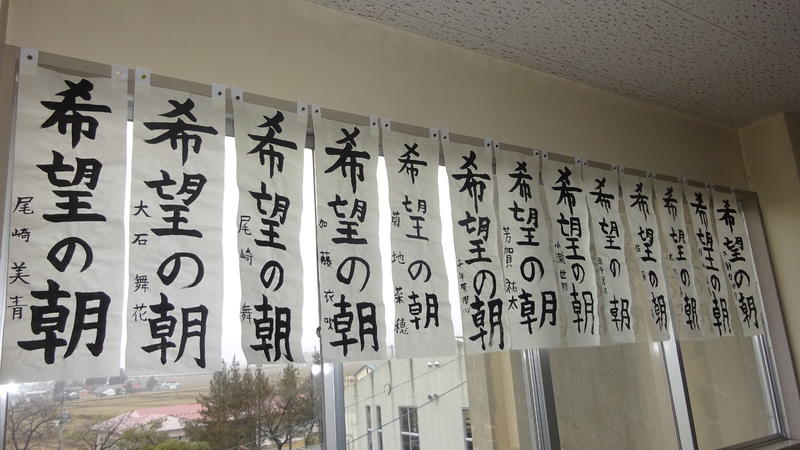 希望の朝
尾崎美青
希望の朝
大石舞花
希望の朝
尾崎舞
希望の朝
加藤衣吹
希望の朝
菊地菜穂
希望の朝
希望の朝
芳賀祐太
希望の朝
希望の朝
希望の朝
希望の朝
希望の朝
希望の朝